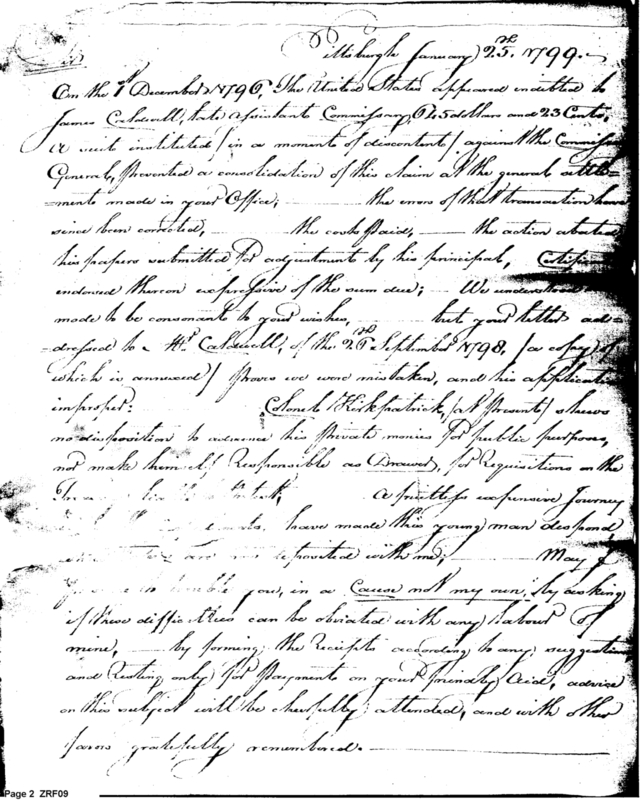 Pittsburgh January 25th. 1799.
On the 1st December 1796, The United States appeared indebted to
James Caldwell, late assistant Commissary, 645 dollars and 23 Cents,
a suit instituted / in a moment of discontent / against the Commissary
General, prevented a consolidation of this claim at the general settle=
=ments made in your Office, the errors of that transaction have
since been corrected, the costs paid, the action abated
his papers submitted for adjustment by his principal,
endorsed thereon expressive of the sum due; We understood
made to be consonant to your wishes, but your letter ad=
=dressed to Mr. Caldwell, of the 26th September 1798, / a copy of
which is annexed / proves we were mistaken, and his application
improper: Colonel Kirkpatrick, / at Present / shews
no disposition to advance his private monies for public purposes,
nor make himself Responsible as Drawer, for Requisitions on the
A fruitless expensive Journey
have made this young man despond
are deposited with me; May I
trouble you, in a Cause not my own, by asking
if these difficulties can be obviated with any labour of
mine, by forming the Receipts according to any suggestion
and Resting only for Payment on your friendly Aid, advice
on this subject will be chearfully attended, and with other
favors gratefully remembered.
Page 2 ZRF09